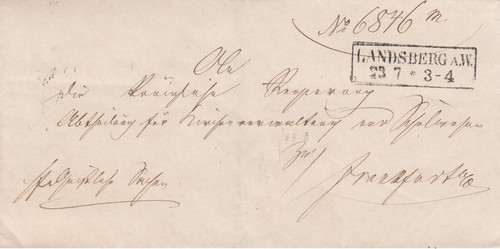 No 6846 m.
LANDSBERG a.W.
23 7 * 3-4
An
die Königliche Regierung
Abtheilung für Kirchenverwaltung und Schulwesen
zu
Frankfurt a/O
Geistliche Sachen